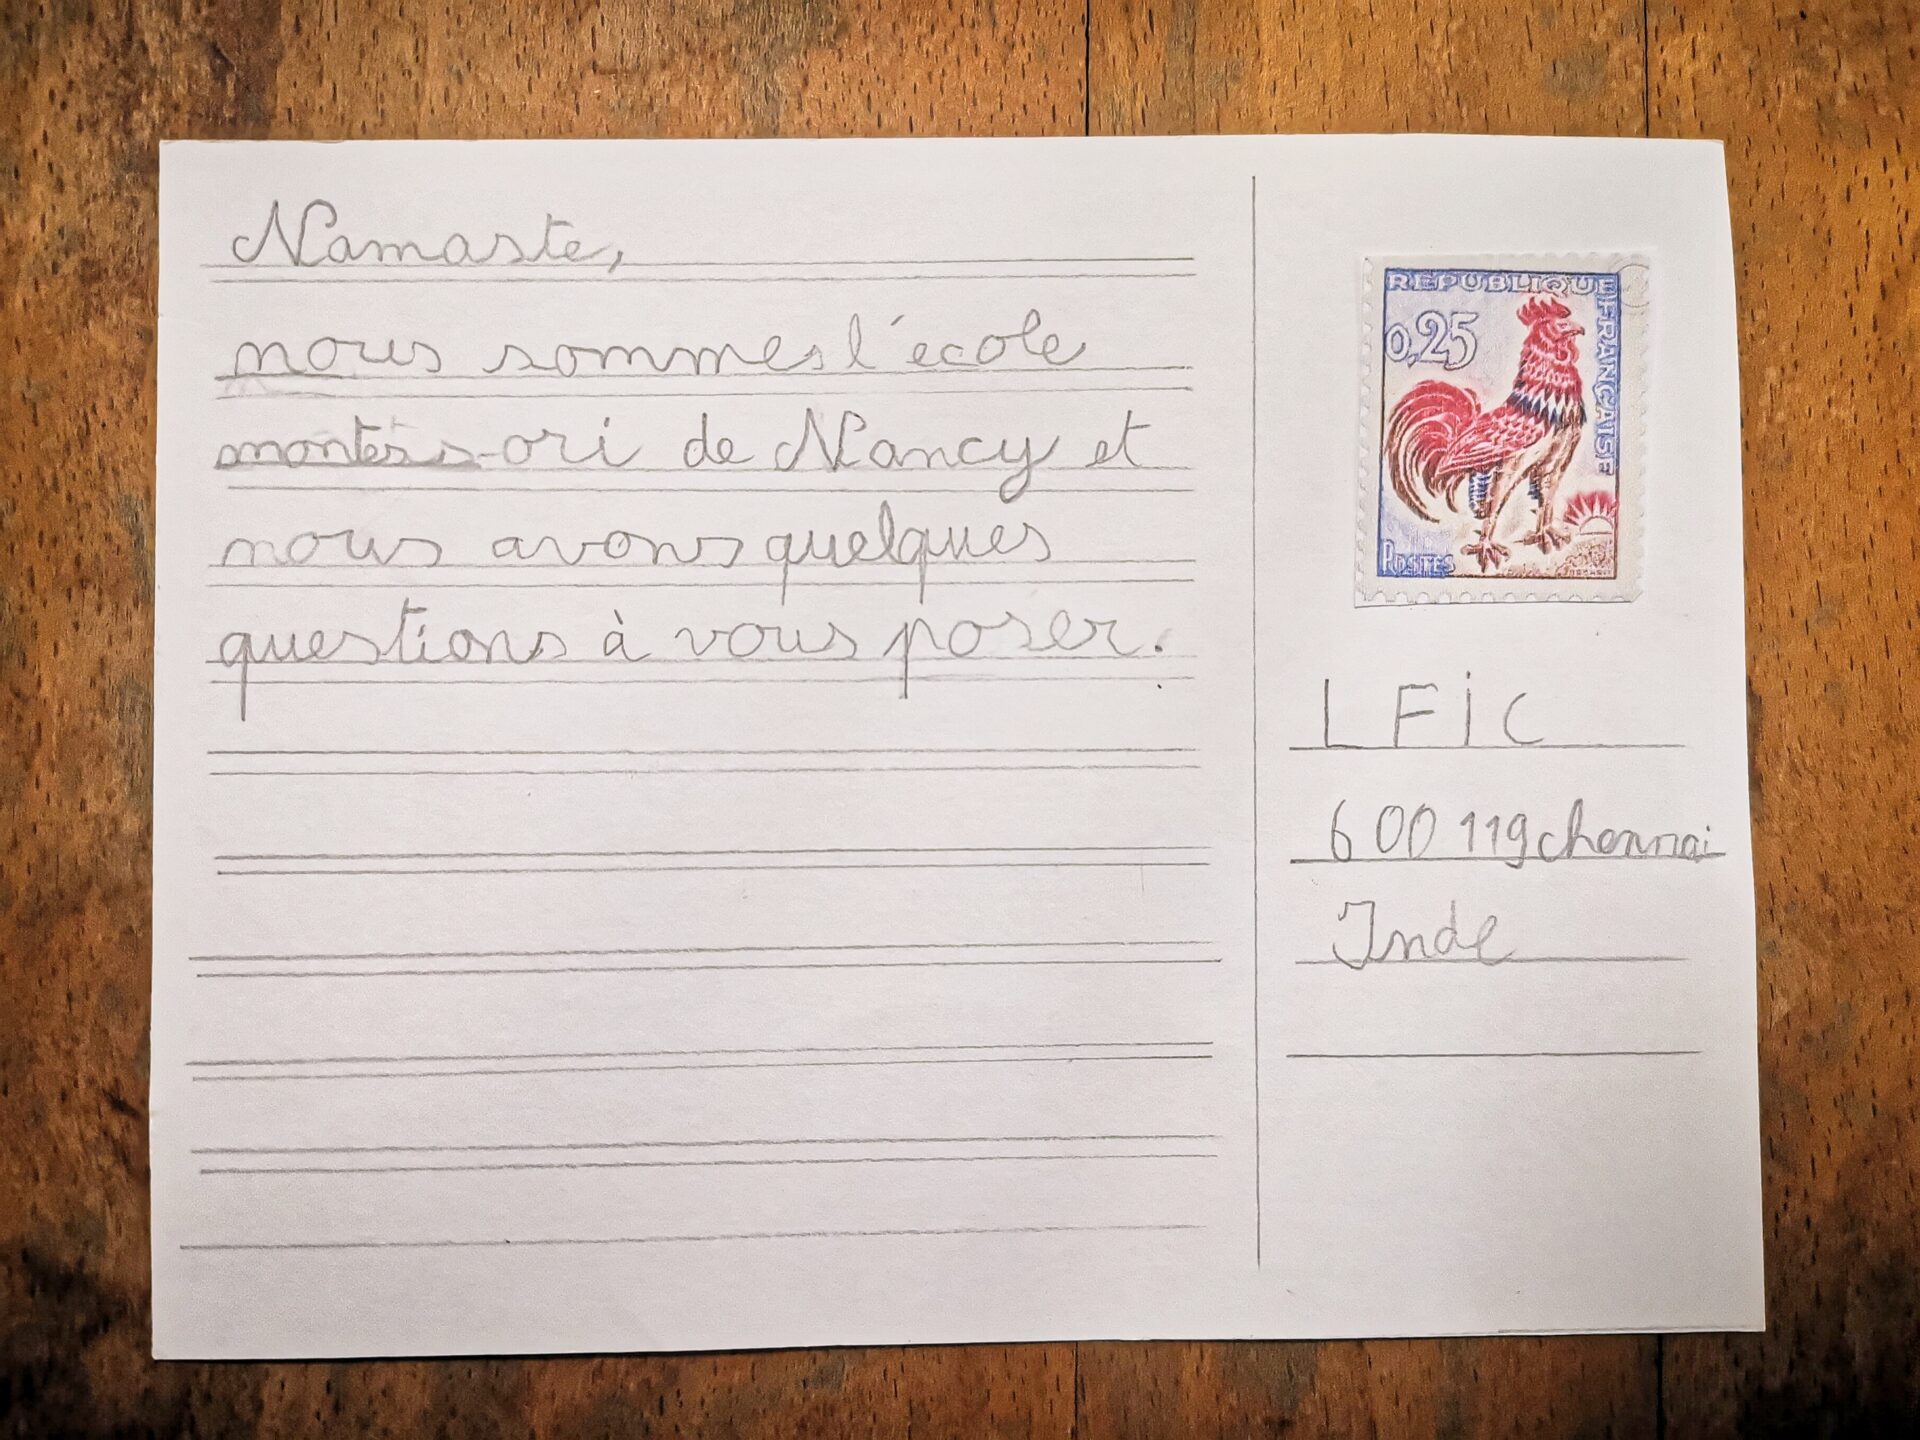 Namaste,
nous sommes l'école
montessori de Nancy et
nous avons quelques
questions à vous poser.
REPUBLIQUE FRANÇAISE
0,25
POSTES
LFiC
600 119 chennai
Inde